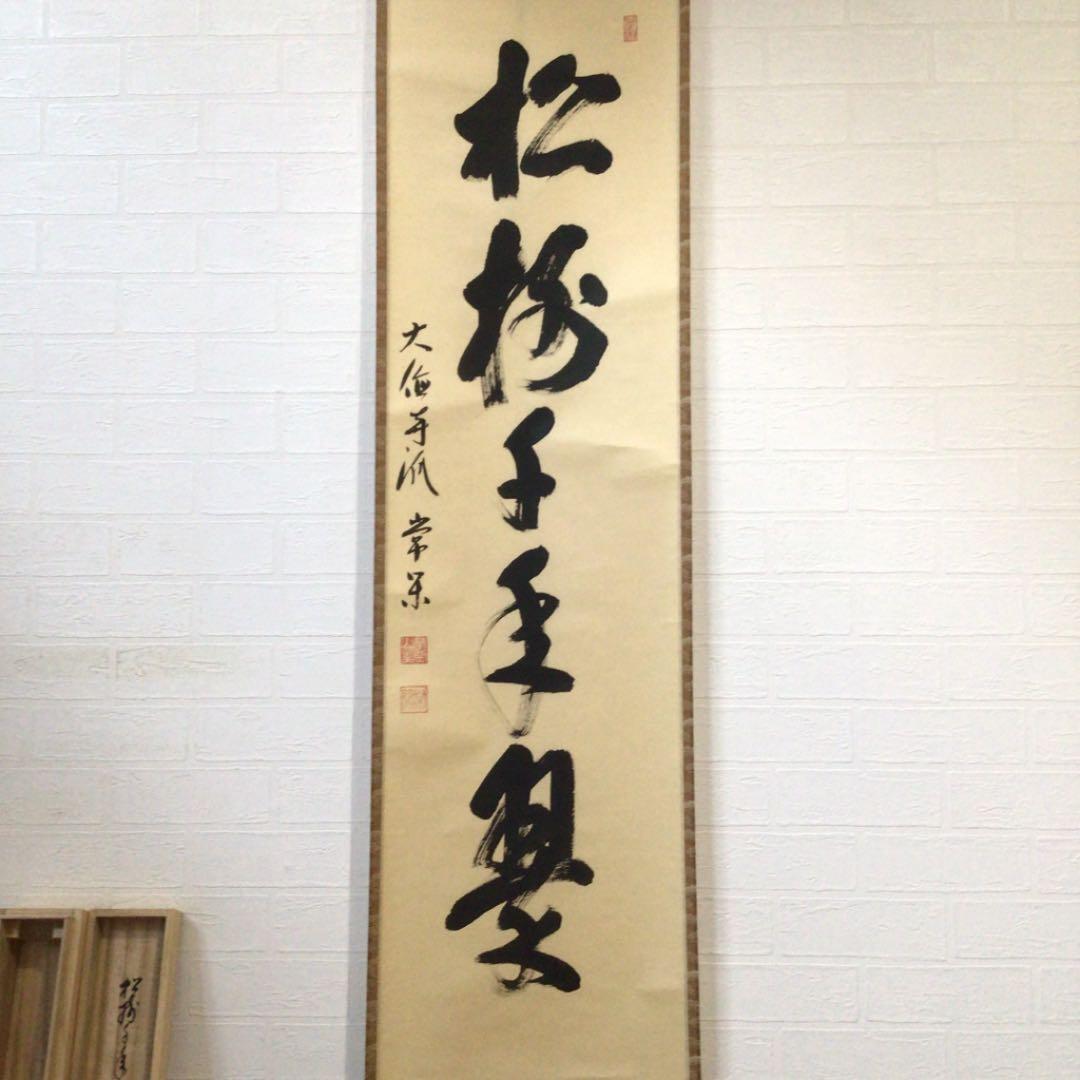 松樹千年翠
大徳寺派 常
松樹千年